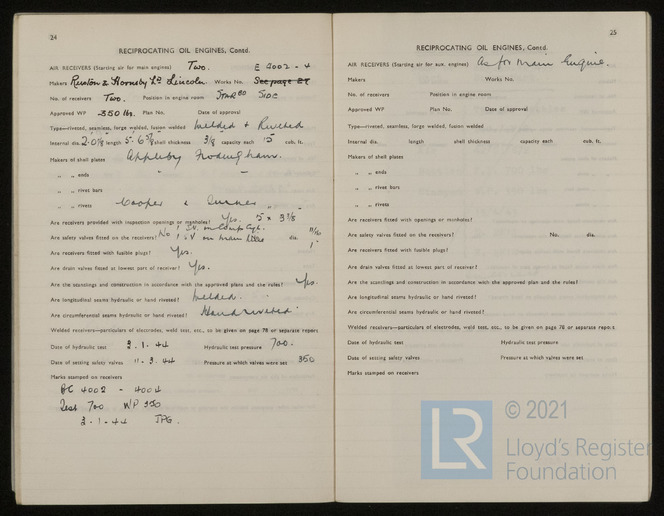 24
RECIPROCATING OIL ENGINES, Contd.
AIR RECEIVERS (Starting air for main engines) Two. E 4002 - 4
Makers Ruston & Hornsby Ld Lincoln Works No. See page 27
No. of receivers Two. Position in engine room Starbd Side
Approved WP 350 lbs. Plan No. Date of approval
Type—riveted, seamless, forge welded, fusion welded Welded & Riveted
Internal dia. 2'-0 1/8" length 5'- 6 5/8" shell thickness 3/8 capacity each 15 cub. ft.
Makers of shell plates Appleby Frodingham.
„ „ ends „ „
„ „ rivet bars
„ „ rivets Cooper & Turner
Are receivers provided with inspection openings or manholes? Yes. 5 x 3 5/8
Are safety valves fitted on the receivers? No on main lines dia.
Are receivers fitted with fusible plugs? Yes.
Are drain valves fitted at lowest part of receiver? Yes.
Are the scantlings and construction in accordance with the approved plan and the rules? Yes.
Are longitudinal seams hydraulic or hand riveted? Welded.
Are circumferential seams hydraulic or hand riveted? Hand riveted.
Welded receivers—particulars of electrodes, weld test, etc., to be given on page 78 or separate report
Date of hydraulic test 3.1.44 Hydraulic test pressure 700.
Date of setting safety valves 11.3.44 Pressure at which valves were set 350
Marks stamped on receivers
4002 - 4004
Test 700 WP 350
3.1.44 JPG.
25
RECIPROCATING OIL ENGINES, Contd.
AIR RECEIVERS (Starting air for aux. engines) As for Main Engine.
Makers Works No.
No. of receivers Position in engine room
Approved WP Plan No. Date of approval
Type—riveted, seamless, forge welded, fusion welded
Internal dia. length shell thickness capacity each cub. ft.
Makers of shell plates
„ „ ends
„ „ rivet bars
„ „ rivets
Are receivers fitted with openings or manholes?
Are safety valves fitted on the receivers? No. dia.
Are receivers fitted with fusible plugs?
Are drain valves fitted at lowest part of receiver?
Are the scantlings and construction in accordance with the approved plan and the rules?
Are longitudinal seams hydraulic or hand riveted?
Are circumferential seams hydraulic or hand riveted?
Welded receivers—particulars of electrodes, weld test, etc., to be given on page 78 or separate report
Date of hydraulic test Hydraulic test pressure
Date of setting safety valves Pressure at which valves were set
Marks stamped on receivers
LR
© 2021
Lloyd's Register
Foundation